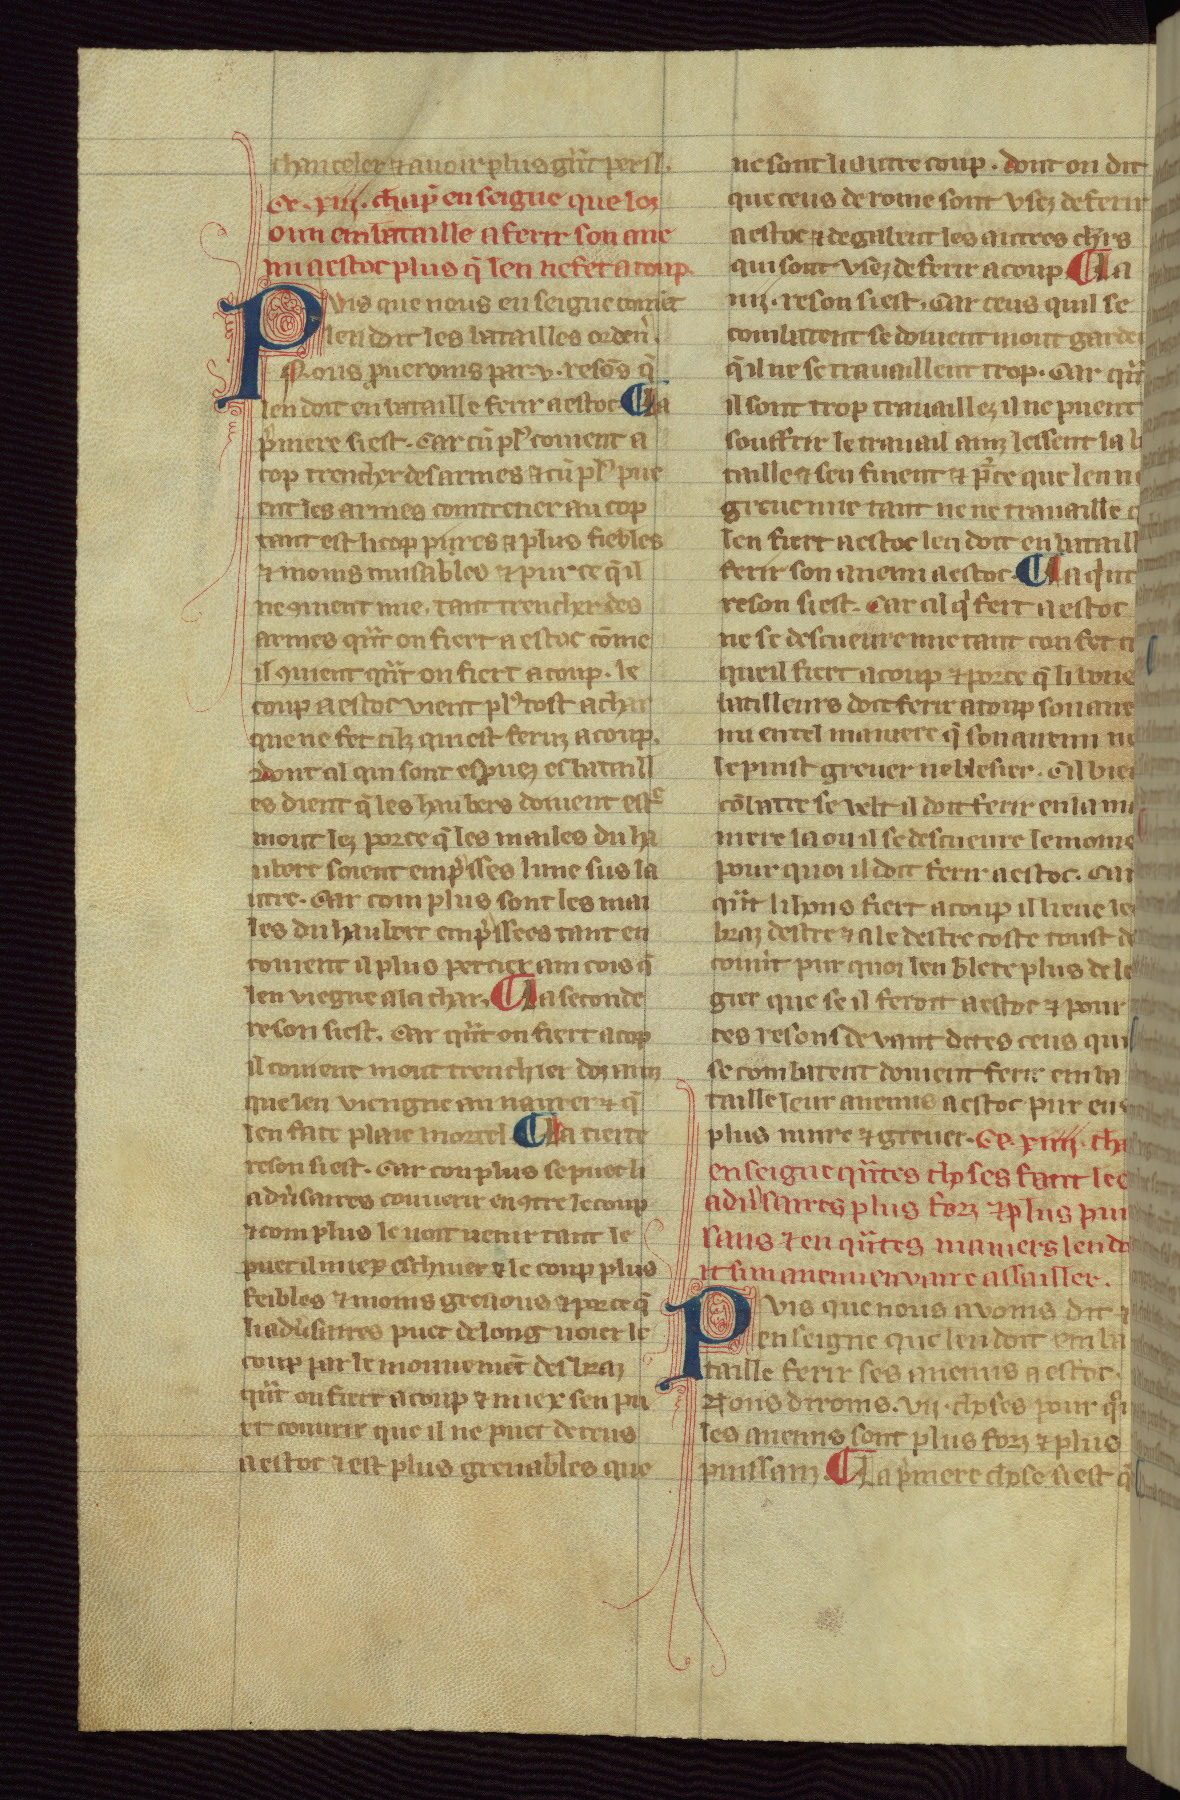 chanceler ⁊ auoir plus gͣnt peril.
Ce .xiii. chap̄ enseigne que lez
on en bataille a ferir son ane
mi a estoc plus q̄ len ne fet a coup.
Puis que nous enseigne comēt
len doit les batailles ordenˀ.
Nous ꝓuerons par .v. resōs q̄
len doit en bataille ferir a estoc. La
pͥmere si est. Car cū plꝰ couient a
cop trencher des armes ⁊ cū plꝰ pue
ent les armes contretier au cop
tant est li cop pures ⁊ plus fiebles
⁊ moins nuisables ⁊ pur ce q̄ il
ne ꝯuient mie, tant trencher des
armes qͣnt on fiert a estoc cōme
il ꝯuient qͣnt on fiert a coup. le
coup a estoc vient plꝰ tost a char
que ne fet cilz qui est feriz a coup.
Dont cil qui sont esꝓuez es bataill
es dient q̄ les haubers doiuent estͤ
mout lez por ce q̄ les mailes du ha
ubert soient empͥsses lune sus la
utre. Car com plus sont les mai
les du haubert empͥssees tant en
couient il plus percier ain cois q̄
len viegne a la char. La seconde
reson si est. Car qͣnt on fiert a cop
il couient mout trenchier dos ainz
que len viengne au naurer ⁊ q̄
len face plaie mortel. La tierce
reson si est. Car con plus se puet li
adūsaires couurir encōtre le coup
⁊ com plus le uoit uenir tant le
puet il miex eschiuer ⁊ le coup plus
feibles ⁊ moins greuous ⁊ por ce q̄
li adūsaires puet de long ueier le
coup par le mouuemēt des braz
qͣnt on fiert a coup ⁊ miex sen pu
et couurir que il ne puet de ceus
a estoc ⁊ est plus greuables que
ne sont li autre coup. dont on dit
que ceus de rome sont vsez de ferir
a estoc ⁊ degabent les autres chrs
qui sont vsez de ferir a coup. La
iiii. reson si est, Car ceus quil se
combatent se doiuent mout garder
q̄ il ne se trauaillent trop. Car qͣnt
il sont trop trauaillez il ne puent
souffrir le trauail ainz lessent la b
taille ⁊ sen fuient ⁊ pͬce que len n
greue mie tant ne ne trauaille q
len fiert a estoc len doit en bataill
ferir son anemi a estoc. La quit
reson si est. Car cil qͥ fert a estoc
ne se descueure mie tant con fet ci
queil fiert a coup ⁊ por ce q̄ li bone
batilleurs doit ferir a coup son ane
mi en tel maniere q̄ son anemi ne
le puist greuer ne blesier. Cil bien
cōbatre se velt il doit ferir en la ma
niere la ou il se descueure le moins
pour quoi il doit ferir a estoc. Car
qͣnt li hons fiert a coup il lieue le
braz destre ⁊ a le destre coste toust de
couūt pur quoi len blece plus de le
gier que se il feroit a estoc ⁊ pour
ces resons deuant dites ceus qui
se combatent doiuent ferir en ba
taille leur anemis a estoc pur eus
plus nuire ⁊ greuer. Ce .xiiii. cha
enseigne qͣntes choses fant les
adūsaires plus forz ⁊ plus pui
sans ⁊ en qͣntes maniers len do
it son anemi en uaie assailler.
Puis que nous auons dit ⁊
enseigne que len doit en ba
taille ferir ses anemis a estoc.
Nous dirons .vii. choses pour qͦi
les anemis sont plus forz ⁊ plus
puissanz. La pͥmere chose si est q̄